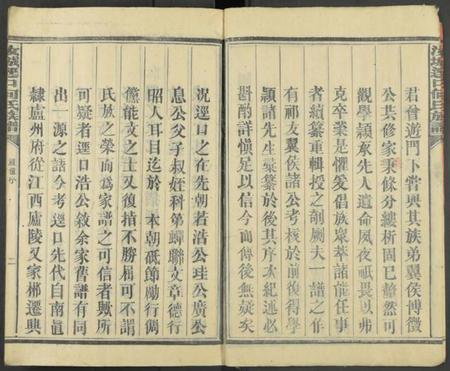 君曾遊門下嘗與其族弟翼侯博徵
公共修家乘條分縷析固已犛然可
觀學穎承先人遺命夙夜祗畏以弗
克卒業是懼爰倡族眾萃諸能任事
者續纂重輯授之剞劂夫一譜之作
有祁友翼侯諸公考核於前復得學
穎諸先生彙纂於後其序次紀述必
斟酌詳愼足以信今而傳後無疑矣
況逕口之在先朝若浩公珪公廣公
息公父子叔姪科第蟬聯文章德行
昭人耳目迄於本朝砥節勵行倜
儻能文之士又復指不勝楬可不謂
氏族之榮而爲家譜之可信者歟所
可疑者逕口浩公敘余家舊譜有同
出一源之語今考逕口先代自南眞
隸廬州府從江西廬陵又家郴遷興
汝城逕口何氏族譜
二